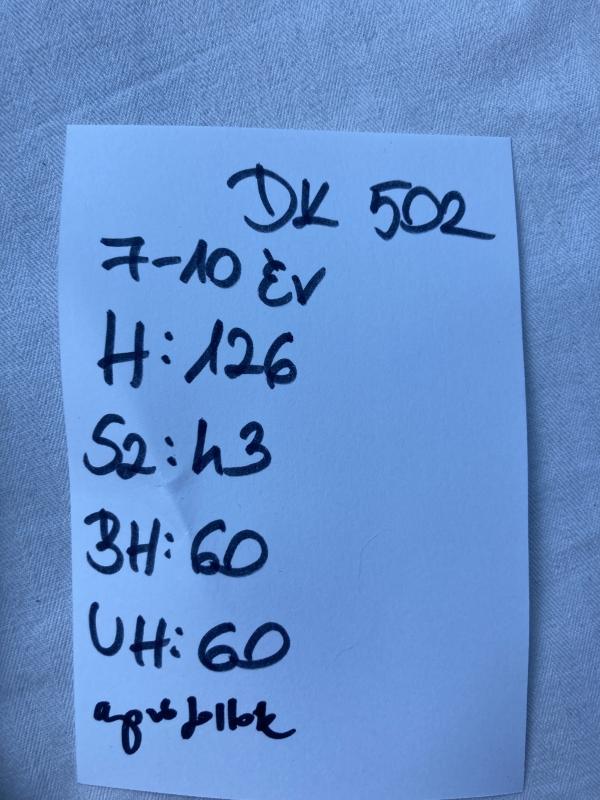 DK 502
7-10 Èv
H: 126
SZ: 43
BH: 60
UH: 60
apró foltok